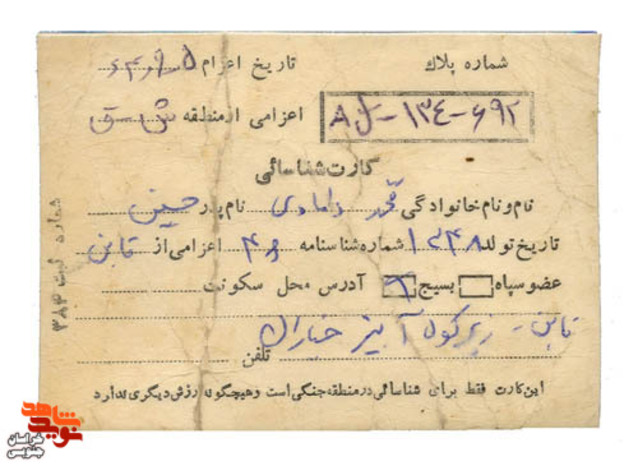 شماره پلاك
تاریخ اعزام
AJ-۱۳٤-۶۹۲
اعزامی ازمنطقه ش ق
کارت شناسائی
نام ونام خانوادگی محمد دامادی نام پدر حسین
تاریخ تولد ۱۳۴۸ شماره شناسنامه ۴۶ اعزامی از قاین
عضوسپاه بسیج آدرس محل سکونت
قاین - زیرکوه آبیز
تلفن
این کارت فقط برای شناسائی درمنطقه جنگی است وهیچگونه ارزش دیگری ندارد
شماره ثبت ۳۸۳
شاهد
نوید
خراسان
جنوبی